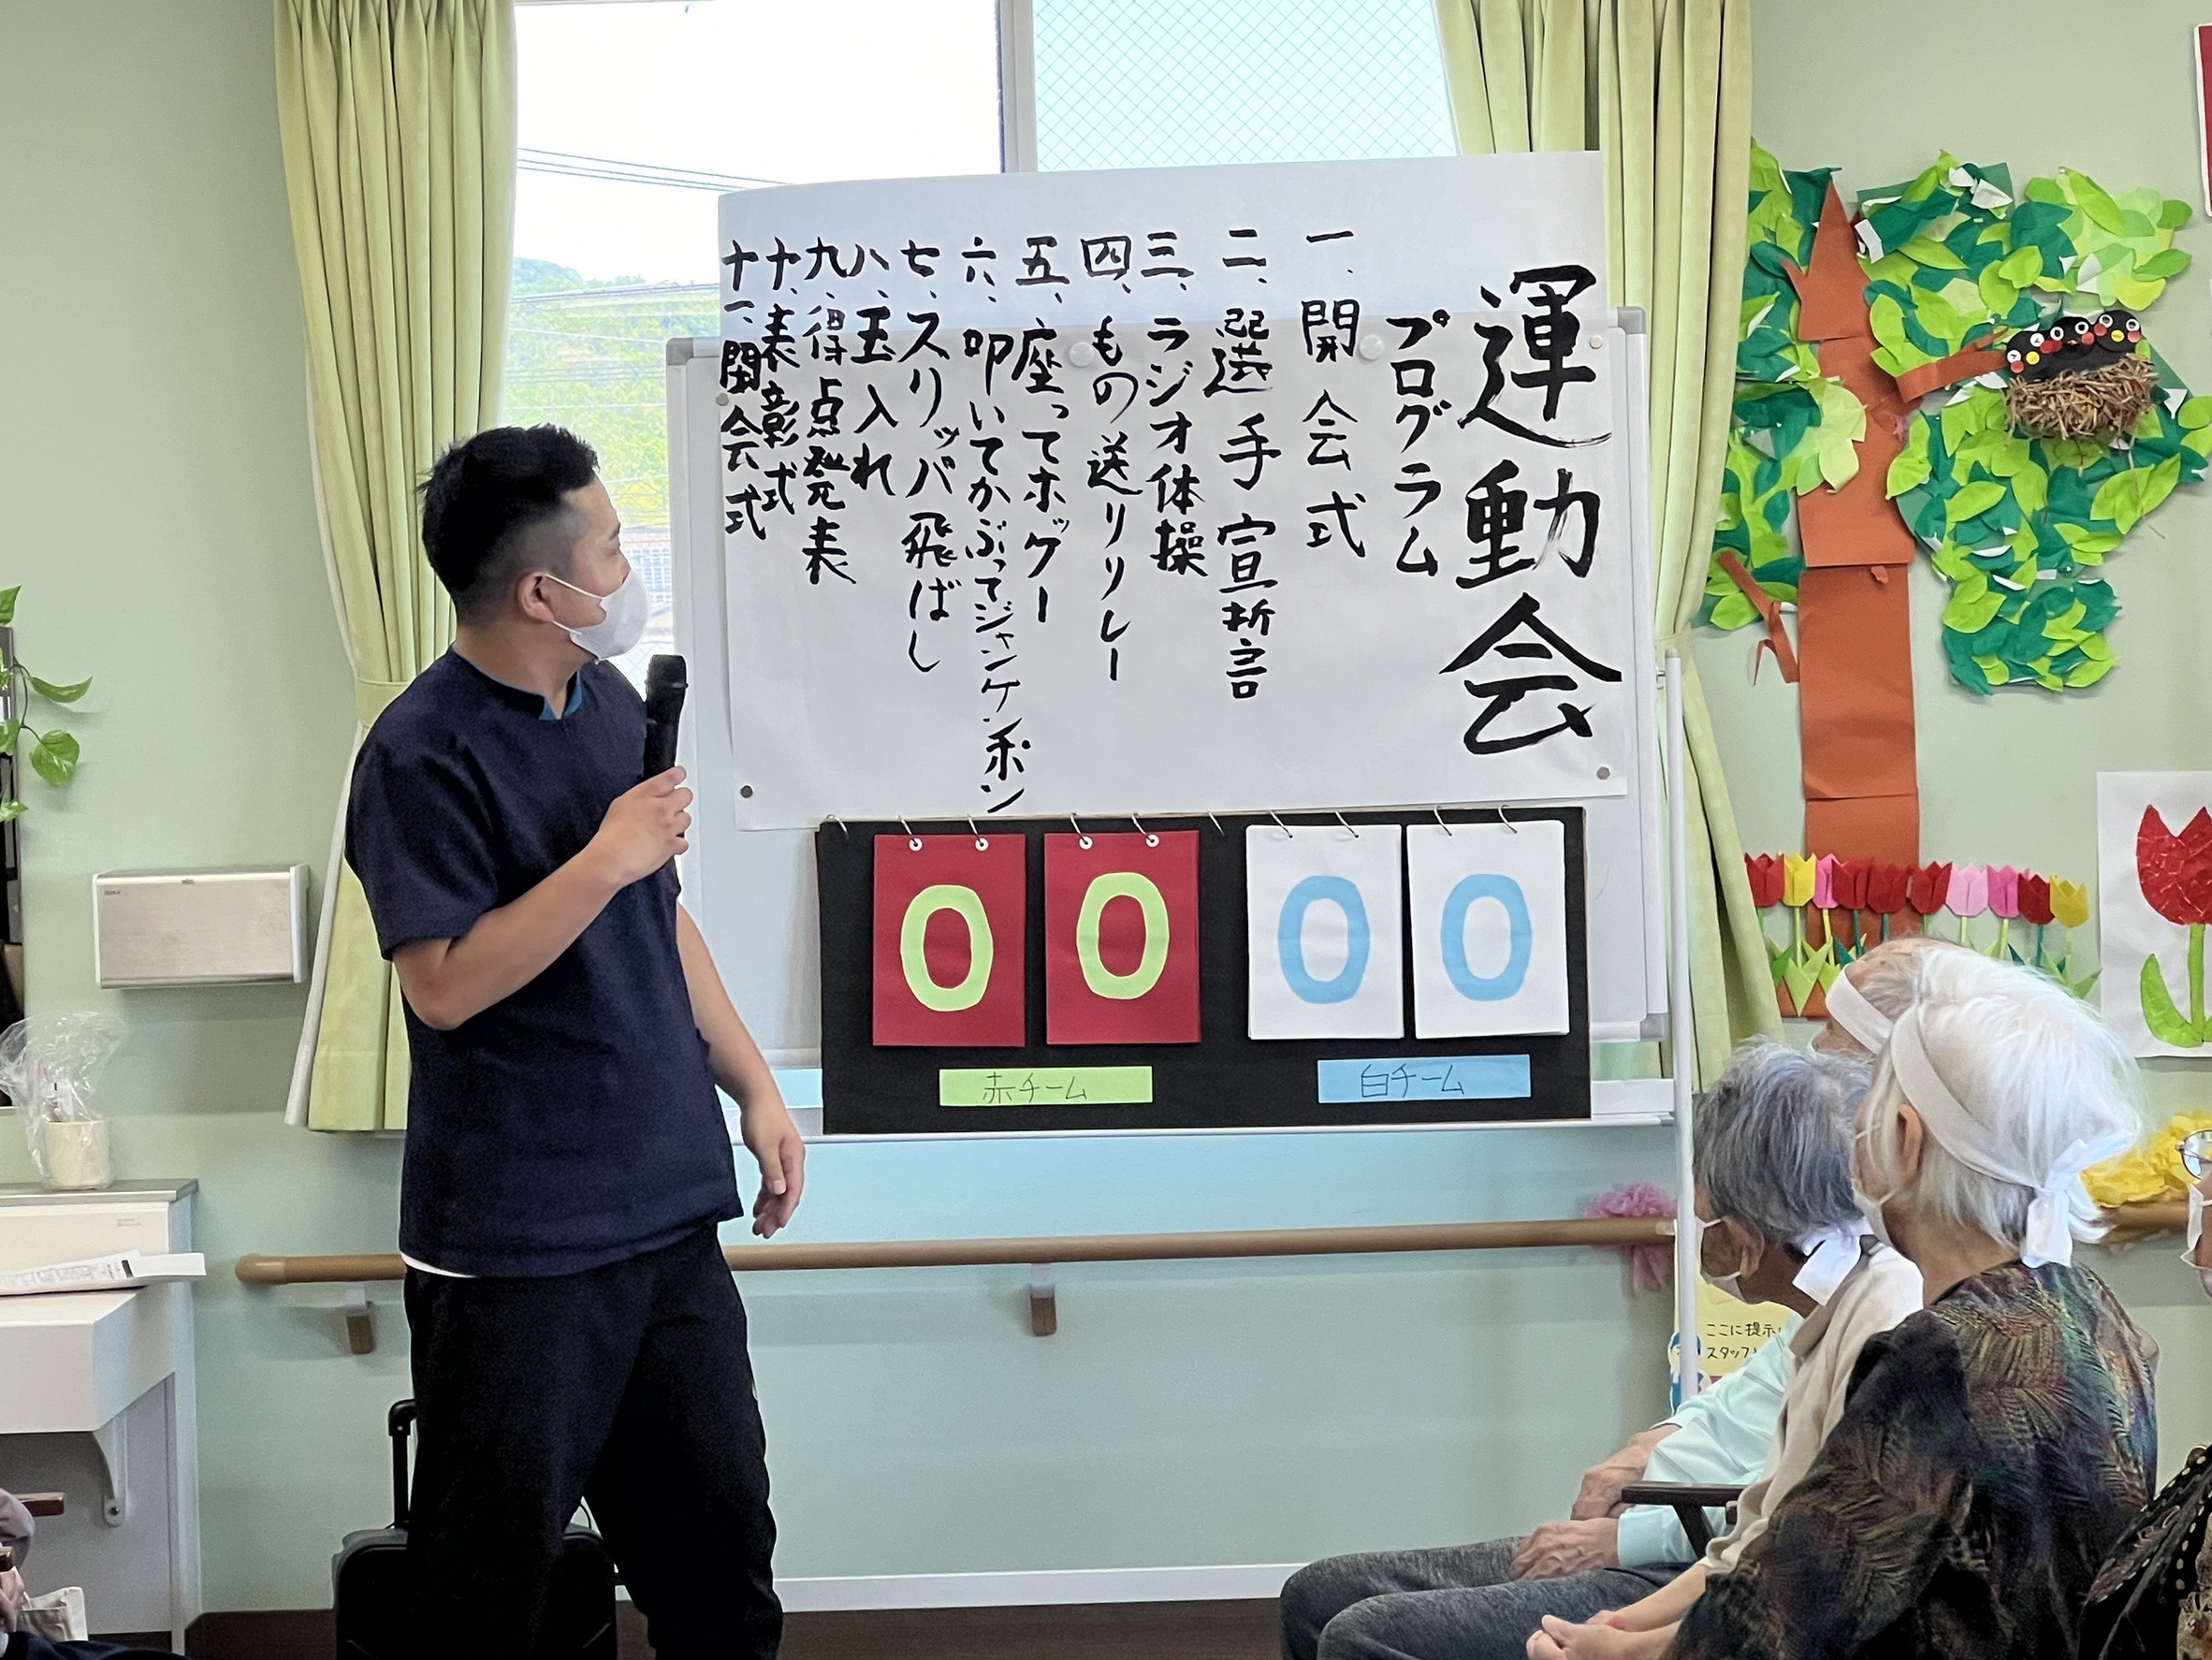 運動会
プログラム
一、開会式
二、選手宣誓
三、ラジオ体操
四、もの送りリレー
五、座ってホッケー
六、叩いてかぶってジャンケンポン
七、スリッパ飛ばし
八、玉入れ
九、得点発表
十、表彰式
十一、閉会式
0 0 0 0
赤チーム
白チーム
ここに提示
スタッフ